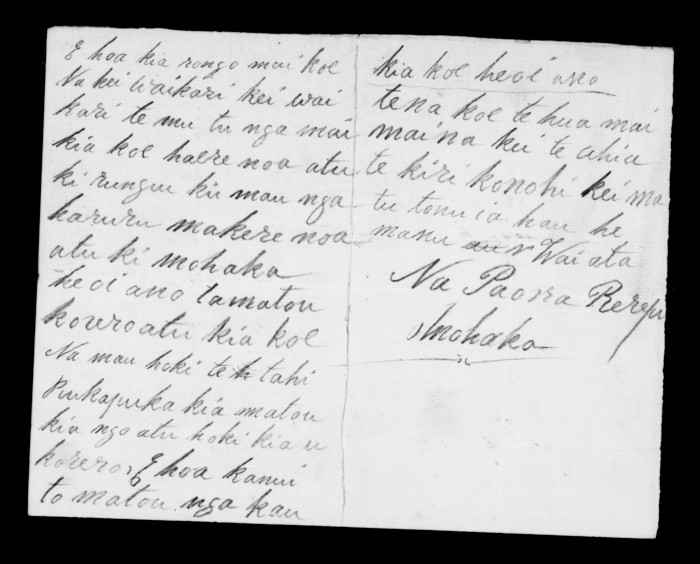 E hoa kia rongo mai koe
Na kei waikari kei wai
kari te mu tu nga mai
kia koe haere noa atu
ki runga ki mau nga
haruru makere noa
atu ki mohaka
heoi ano ta matou
korero atu kia koe
Na mau hoki te tahi
Pukapuka kia matou
kia ngo atu hoki kia u
korero, E hoa kanui
to matou nga kau
kia koe heoi ano
tena koe te hua mai
mai na kei te ahia
te kiri konohi kei ma
tu tonu ia hau he
manu Wai ata
Na Paora Rerepu
Mohaka